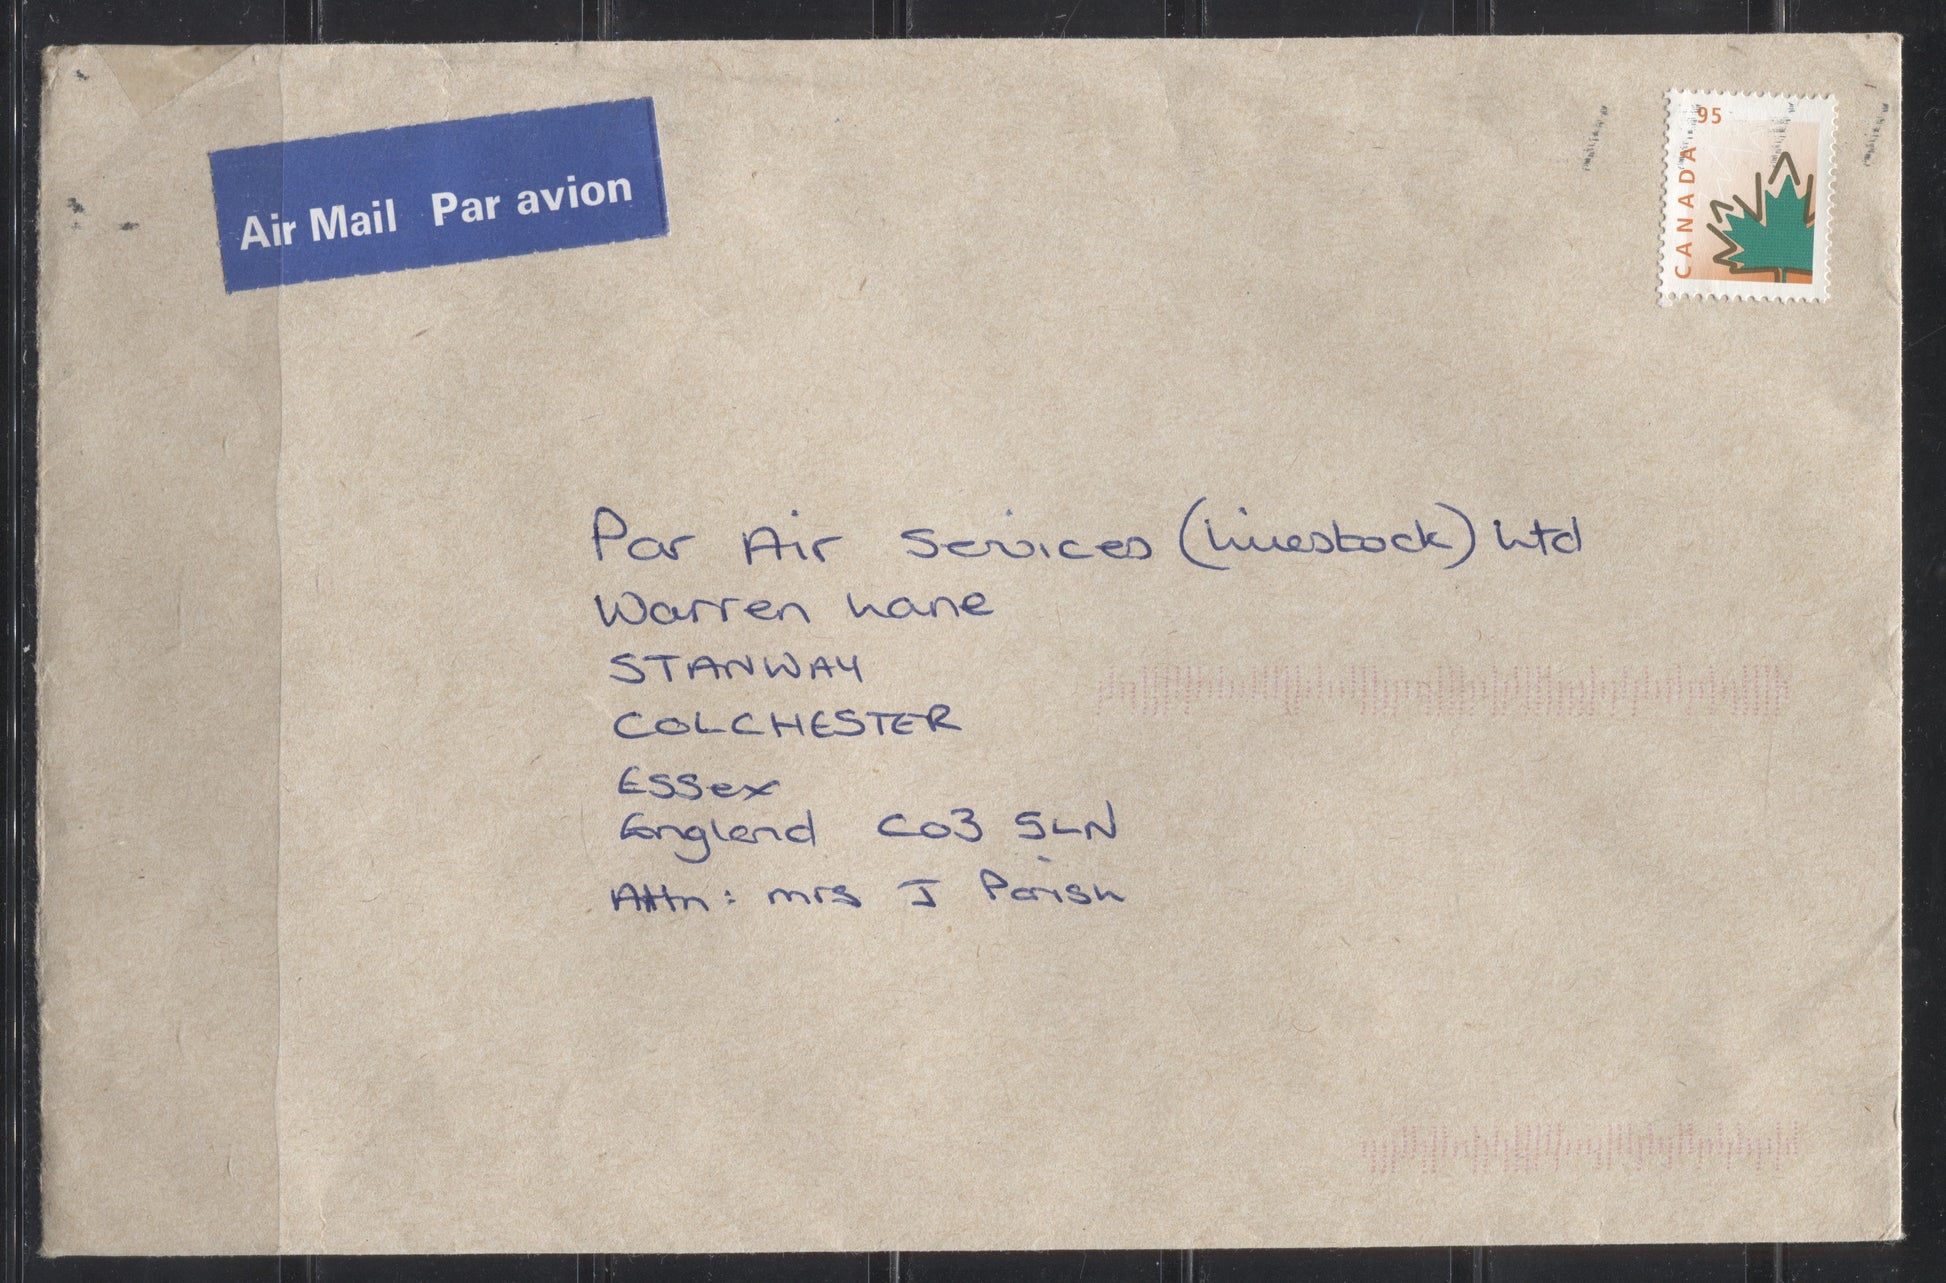 Air Mail Par avion
CANADA 95
Par Air Services (Livestock) Ltd
Warren Lane
STANWAY
COLCHESTER
Essex
England CO3 5LN
Attn: Mrs J Parish